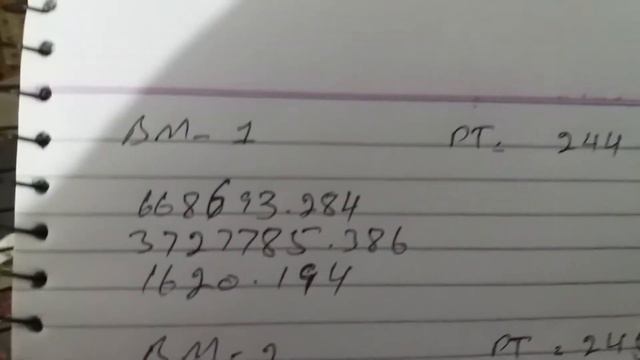 BM- 1 PT= 244
668693.284
3727785.386
1620.194
BM-2 PT=244